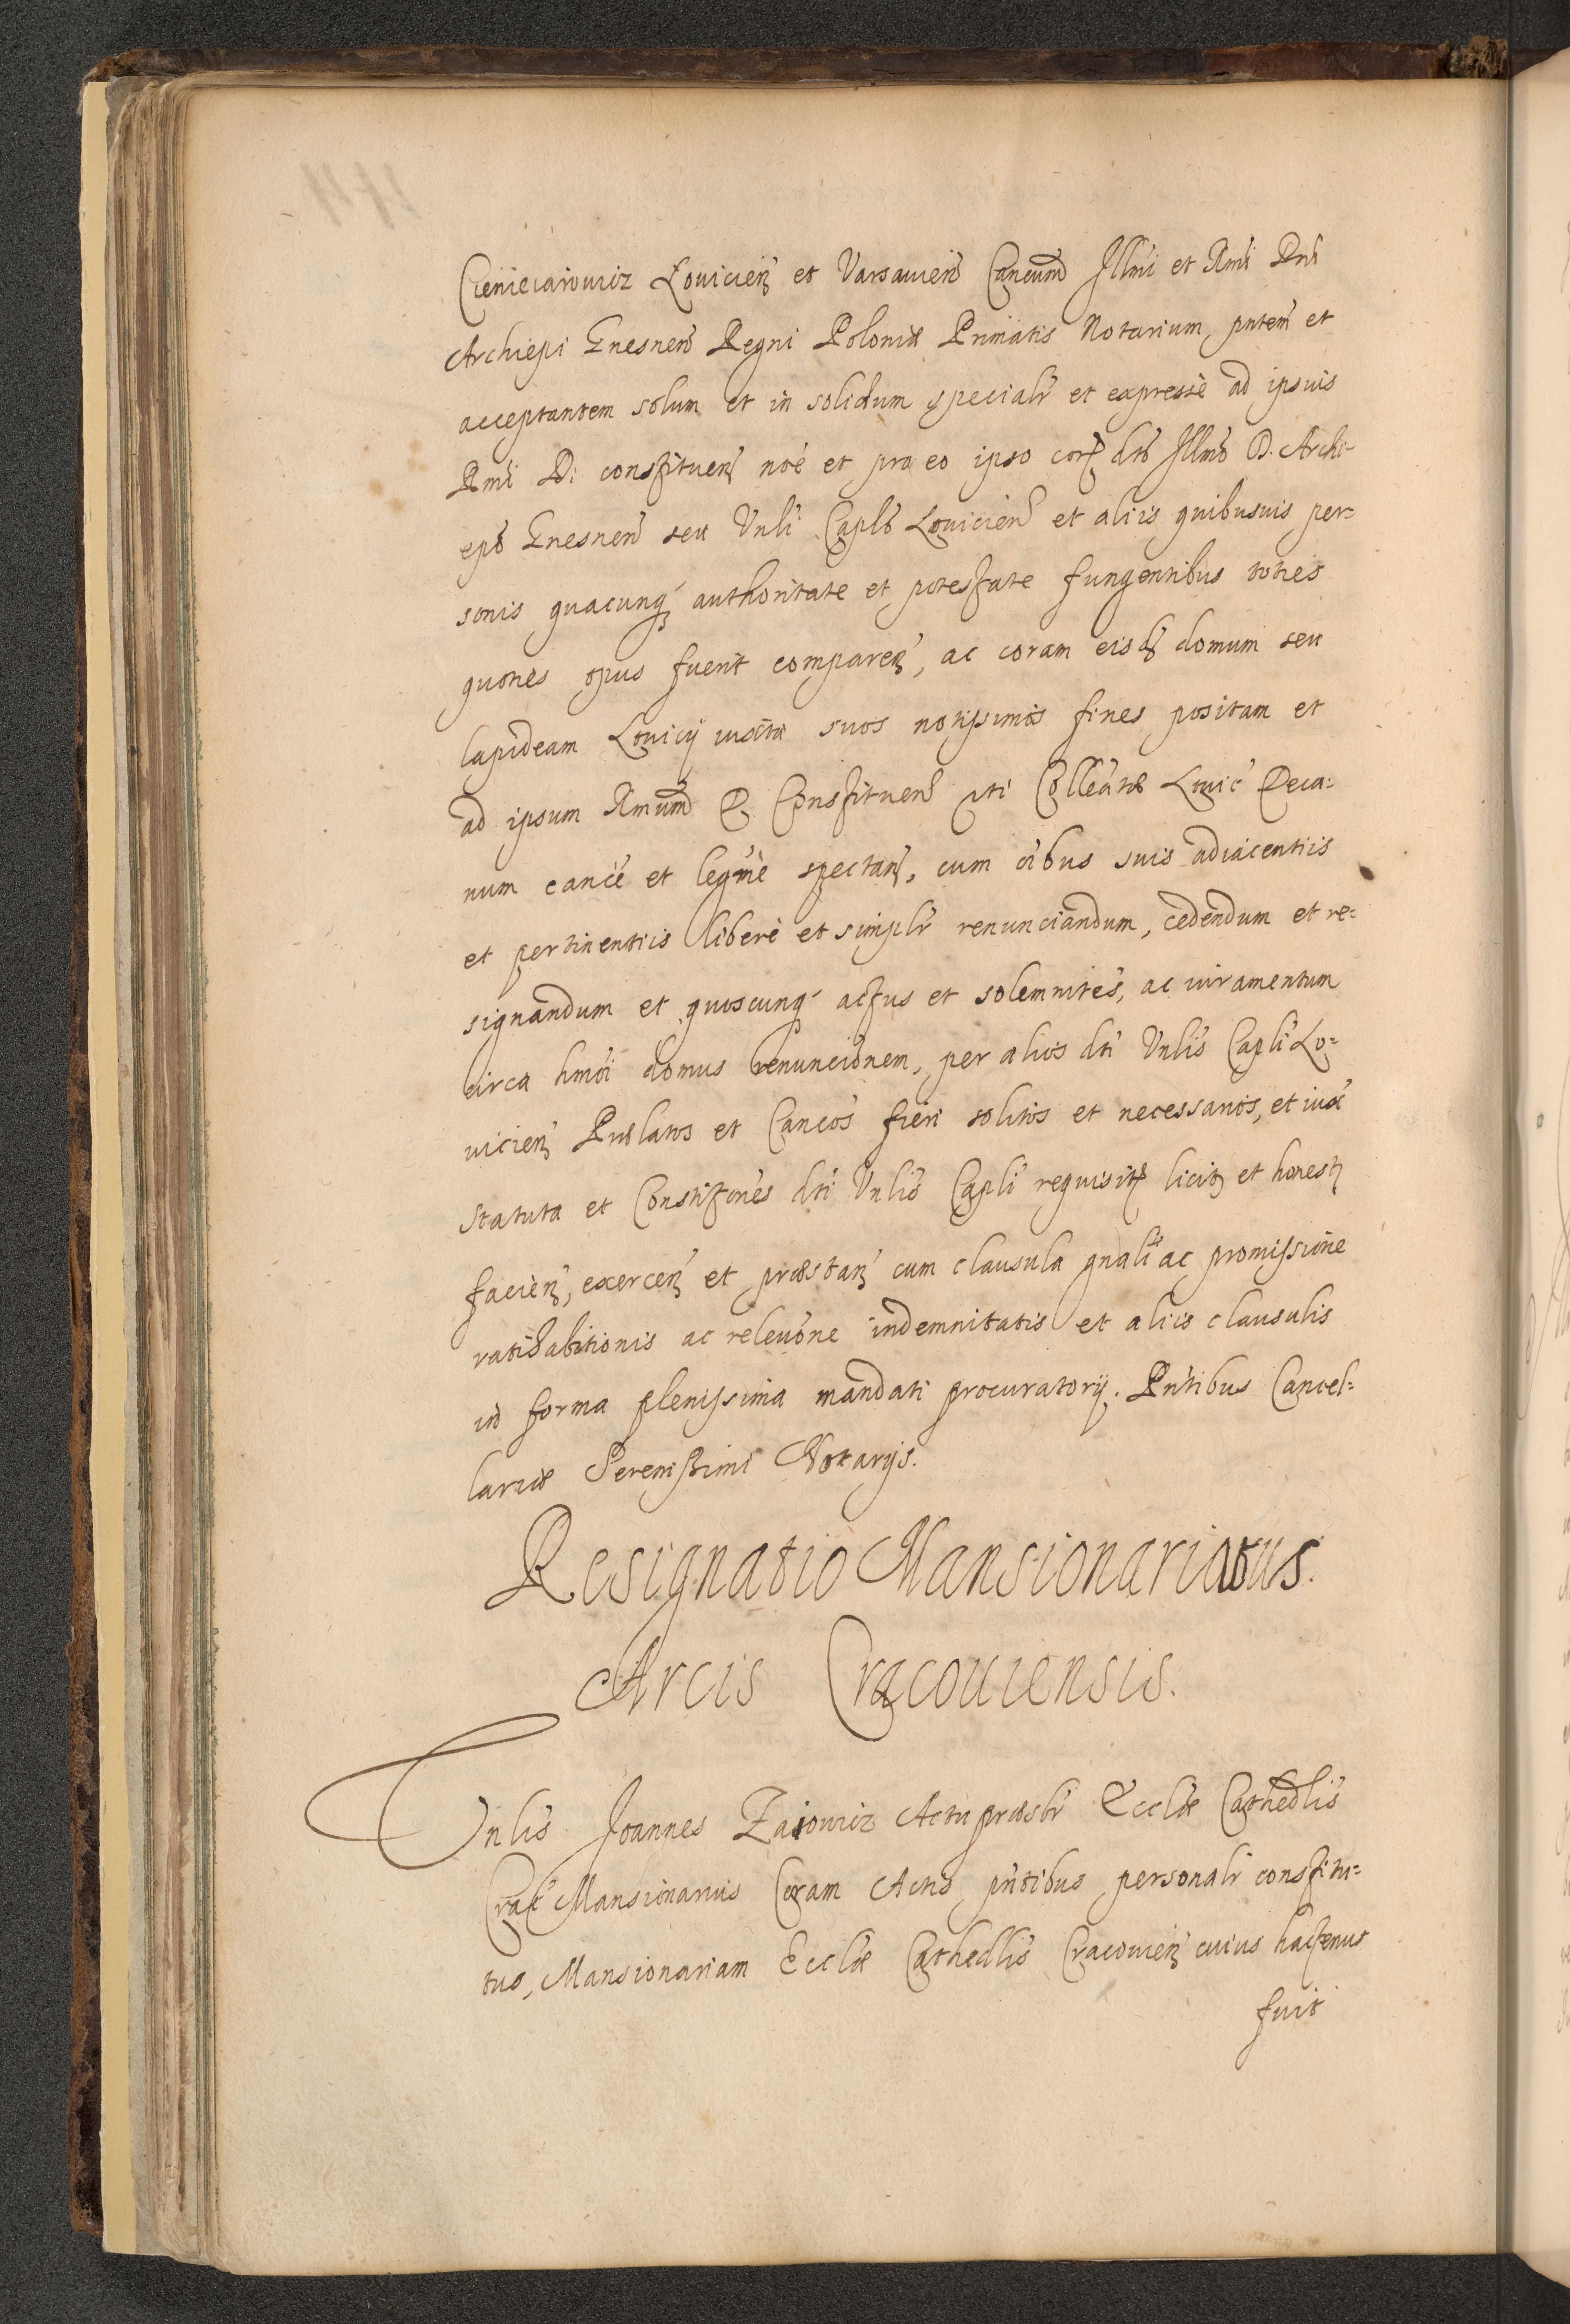 Cieniecariowicz Louicien et Varsauien Cancum Illmi et Rmi Dni
Archiepi Gnesnen Regni Poloniæ Primatis Notarium, pntem et
acceptantem solum et in solidum speciali et expresse ad ipsius
Rmi Di constituen noe et pro eo ipso cor dto Illmo D. Archi-
epo Gnesnen seu Vnli Caplo Louicien et aliis quibusuis per=
sonis quacunq authoritate et potestate fungentibus toties
quoties opus fuerit comparen, ac coram eisd domum seu
lapideam Louicij iuxta suos notissimos fines positam et
ad ipsum Rmum D. Constituen uti Colleatæ Louic Deca=
num cance et legme spectan, cum oibus suis adiacentiis
et pertinentiis libere et simplr renunciandum, cedendum et re=
signandum et quoscunq actus et solemnites, ac iuramentum
circa hmoi domus renuncionem, per alios dti Vnlis Capli Lo=
uicien Prælatos et Cancos fieri solitos et necessarios, et iux
statuta et Constitiones dti Vnlis Capli requisit licit et honest
facien, exercen et præstan cum clausula gnali ac promissione
ratihabitionis ac releuone indemnitatis et aliis clausulis
in forma plenissima mandati procuratorij. Pntibus Cancel=
lariæ Serenissimi Notarijs.
Resignatio Mansionariatus
Arcis Cracouiensis.
Vnlis Joannes Zaiowicz Actu præsbr Eccliæ Cathedlis
Crac Mansionarius Coram Actis pntibus personalr constitu=
tus, Mansionariam Eccliæ Cathedlis Cracouien cuius hactenus
fuit